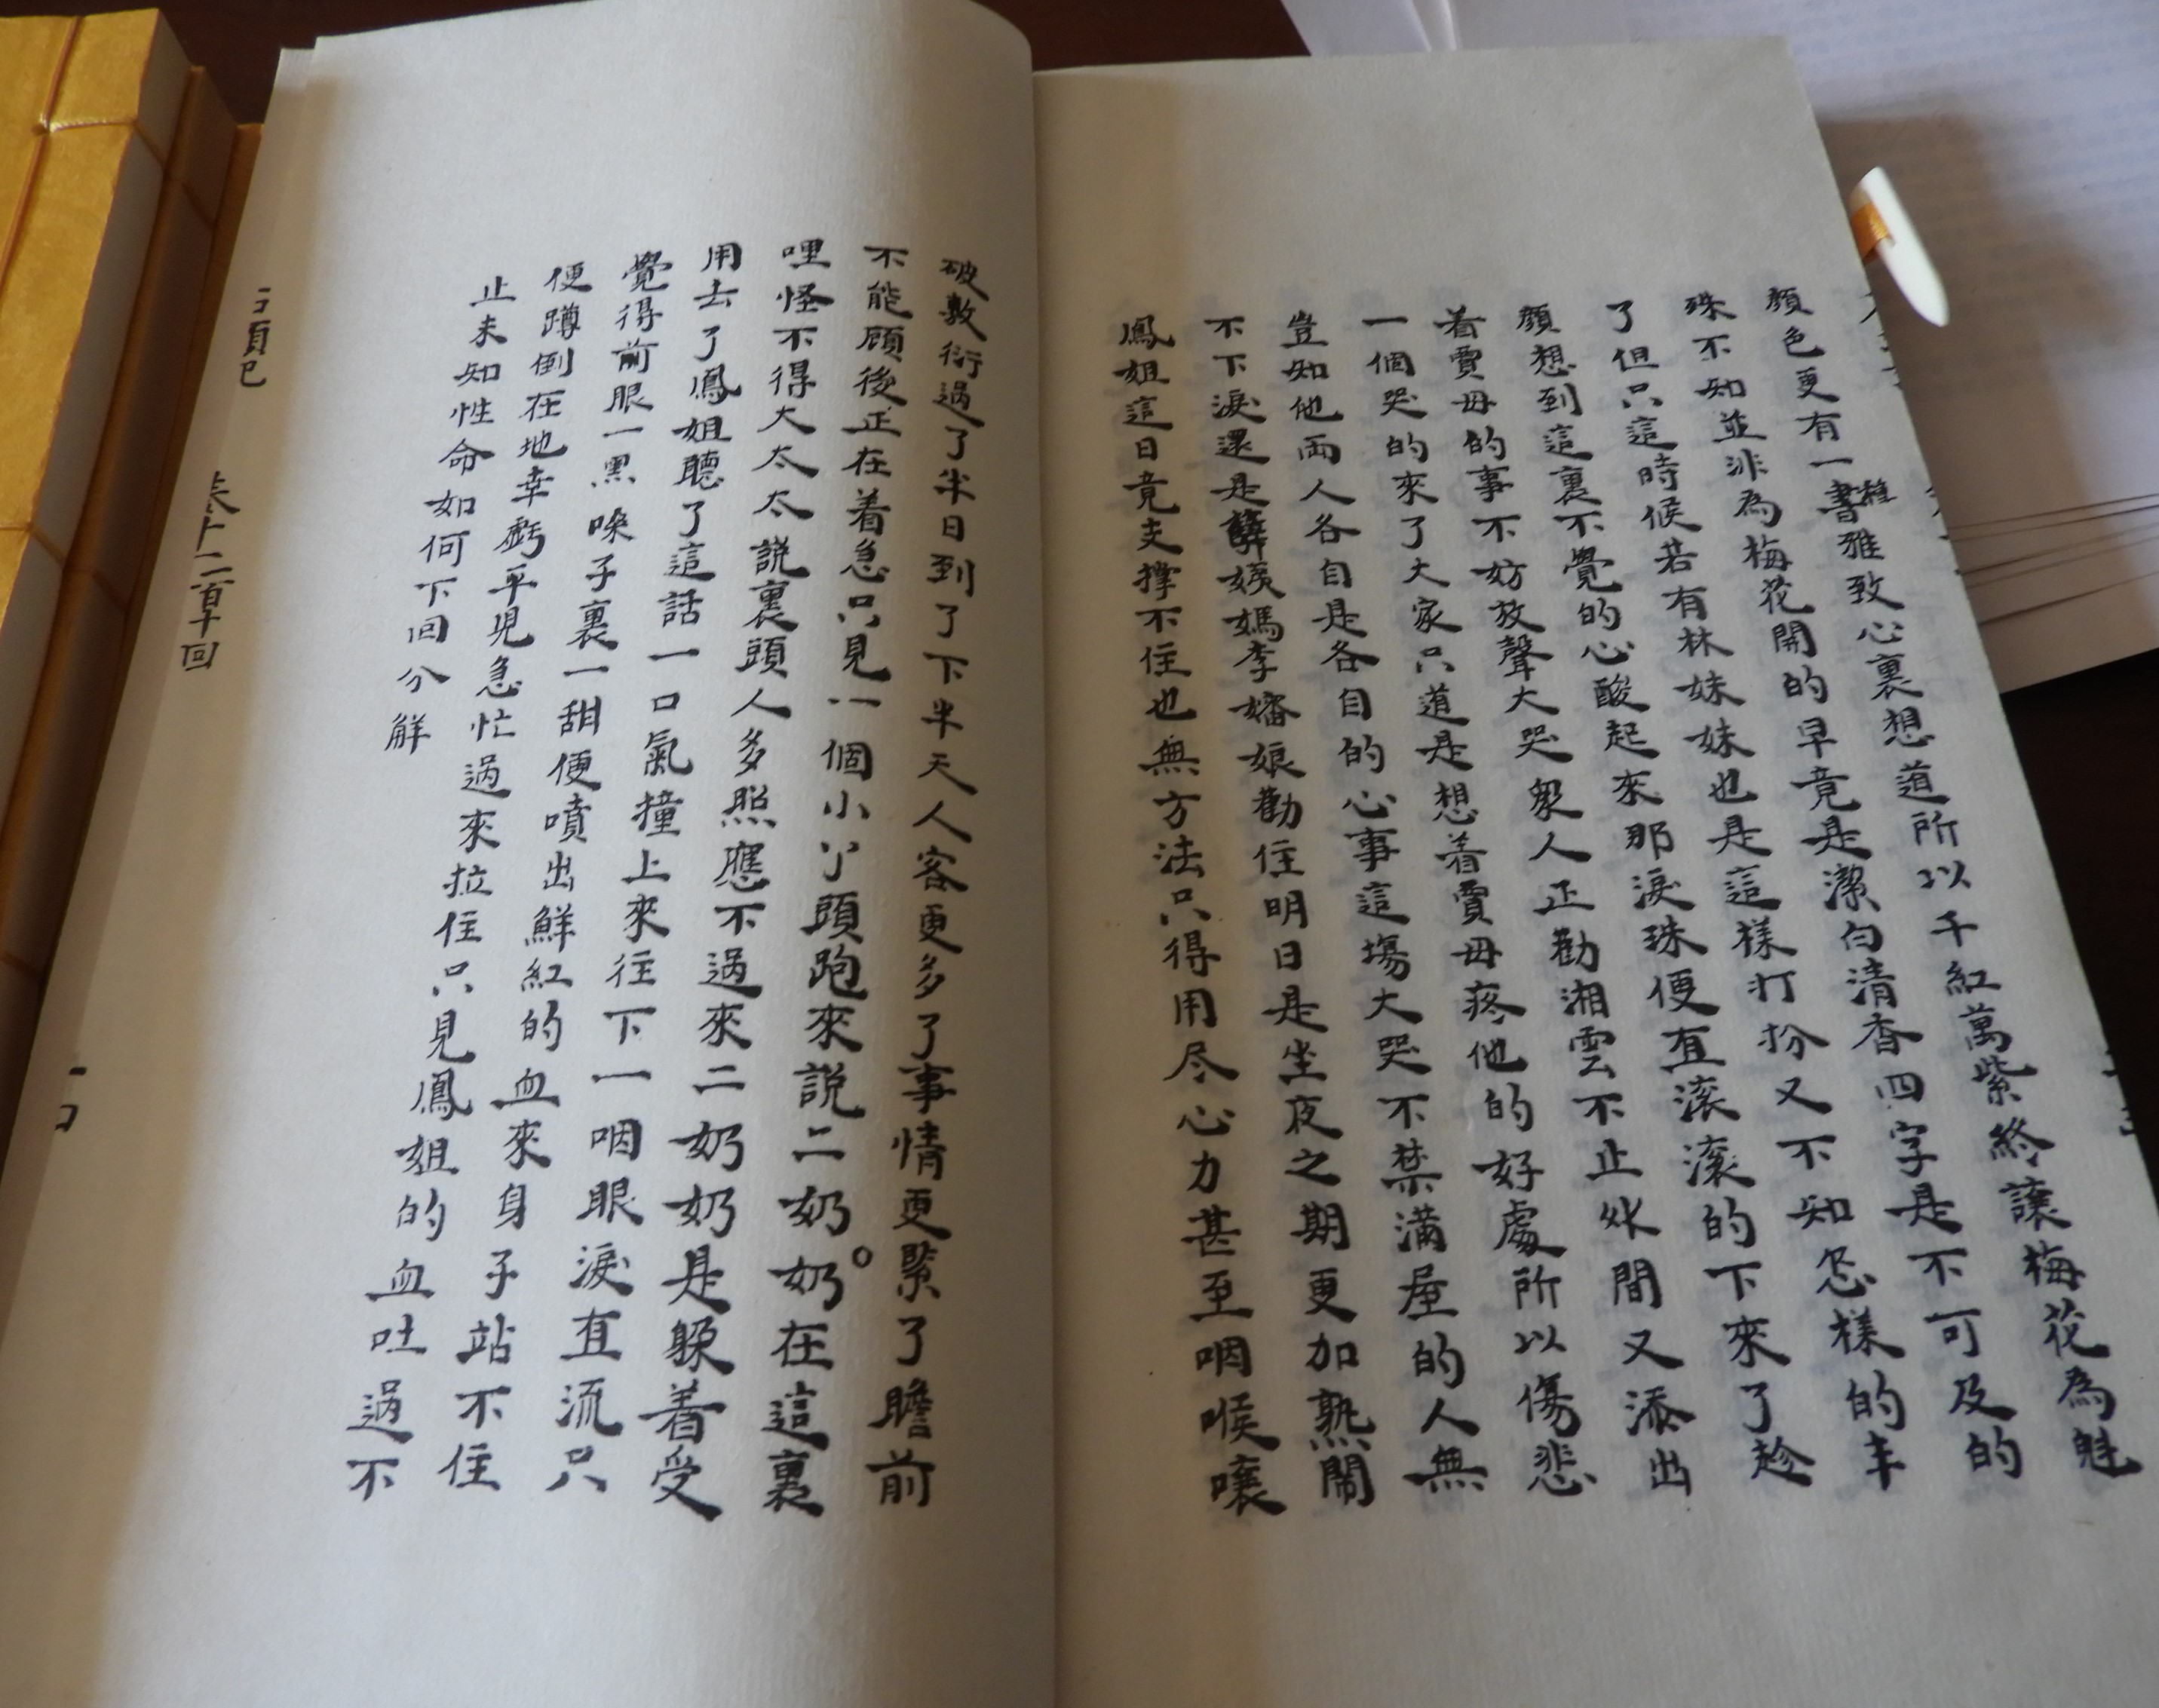 顏色更有一種雅致心裏想道所以千紅萬紫終讓梅花為魁
殊不知並非為梅花開的早竟是潔白清香四字是不可及的
了但只這時候若有林妹妹也是這樣打扮又不知怎樣的丰
顏想到這裏不覺的心酸起來那淚珠便直滾滾的下來了趁
着賈母的事不妨放聲大哭眾人正勸湘雲不止外間又添出
一個哭的來了大家只道是想着賈母疼他的好處所以傷悲
豈知他兩人各自是各自的心事這場大哭不禁滿屋的人無
不下淚還是薛姨媽李嬸娘勸住明日是坐夜之期更加熱鬧
鳳姐這日竟支撐不住也無方法只得用尽心力甚至咽喉嚷
破敷衍過了半日到了下半天人客更多了事情更緊了瞻前
不能顧後正在着急只見一個小丫頭跑來說二奶奶在這裏
哩怪不得大太太說裏頭人多照應不過來二奶奶是躲着受
用去了鳳姐聽了這話一口氣撞上來往下一咽眼淚直流只
覺得前眼一黑嗓子裏一甜便噴出鮮紅的血來身子站不住
便蹲倒在地幸虧平兒急忙過來拉住只見鳳姐的血吐過不
止未知性命如何下回分解